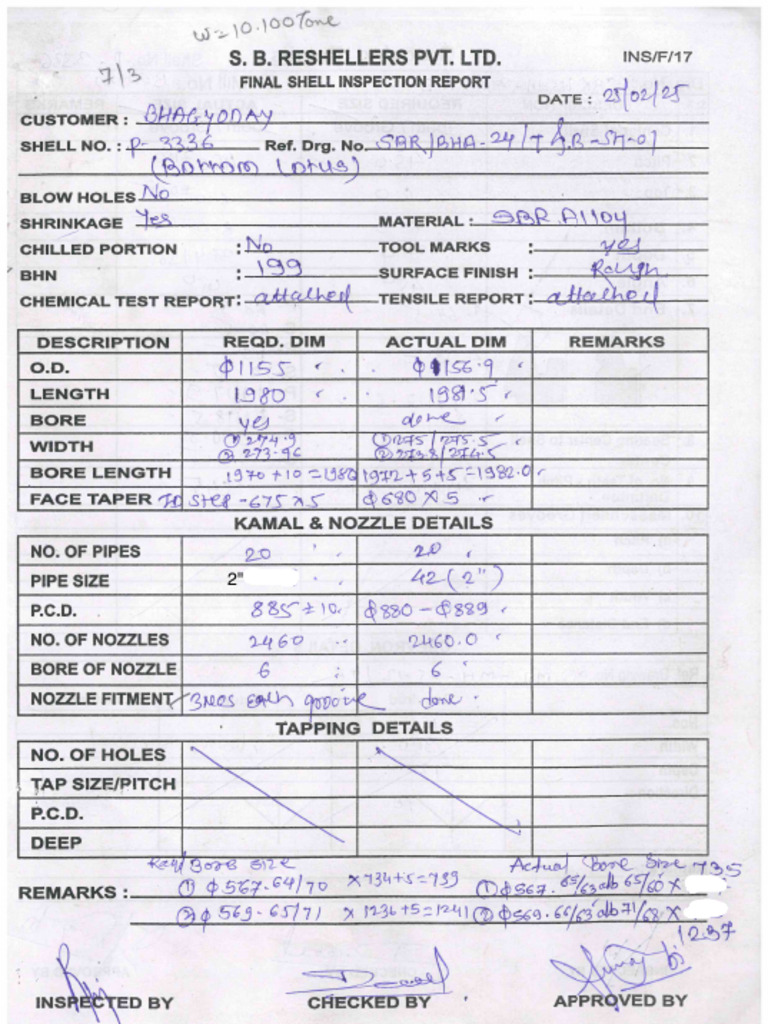 W=10.100Tone
S. B. RESHELLERS PVT. LTD. INS/F/17
7/3 FINAL SHELL INSPECTION REPORT
DATE : 25/02/25
CUSTOMER : BHAGYODAY
SHELL NO. : P-3336 Ref. Drg. No. SBR/BHA-24/T S.B-SH-01
(Bottom Lotus)
BLOW HOLES No
SHRINKAGE Yes MATERIAL : SBR A1104
CHILLED PORTION : No TOOL MARKS : yes
BHN : 199 SURFACE FINISH : Rough
CHEMICAL TEST REPORT : attalhed TENSILE REPORT : attalhed
DESCRIPTION REQD. DIM ACTUAL DIM REMARKS
O.D. φ1155 φ1156.9
LENGTH 1980 1981.5
BORE yes done
WIDTH ① 274.9 ② 273.96 ① 275/275.5 ② 273.8/274.5
BORE LENGTH 1970+10=1980 1972+5+5=1982.0
FACE TAPER ID Step -675x5 φ680x5
KAMAL & NOZZLE DETAILS
NO. OF PIPES 20 20
PIPE SIZE 2" 42 (2")
P.C.D. 885±10 φ880-φ889
NO. OF NOZZLES 2460 2460.0
BORE OF NOZZLE 6 6
NOZZLE FITMENT 3NOS EACH groove done
TAPPING DETAILS
NO. OF HOLES
TAP SIZE/PITCH
P.C.D.
DEEP
Req/Bore size Actual Bore Size
REMARKS : ① φ567.64/70 x734+5=739 ① φ567.65/63 db 65/60 x 735
② φ569.65/71 x1236+5=1241 ② φ569.66/63 db 71/68 x 1237
INSPECTED BY CHECKED BY APPROVED BY